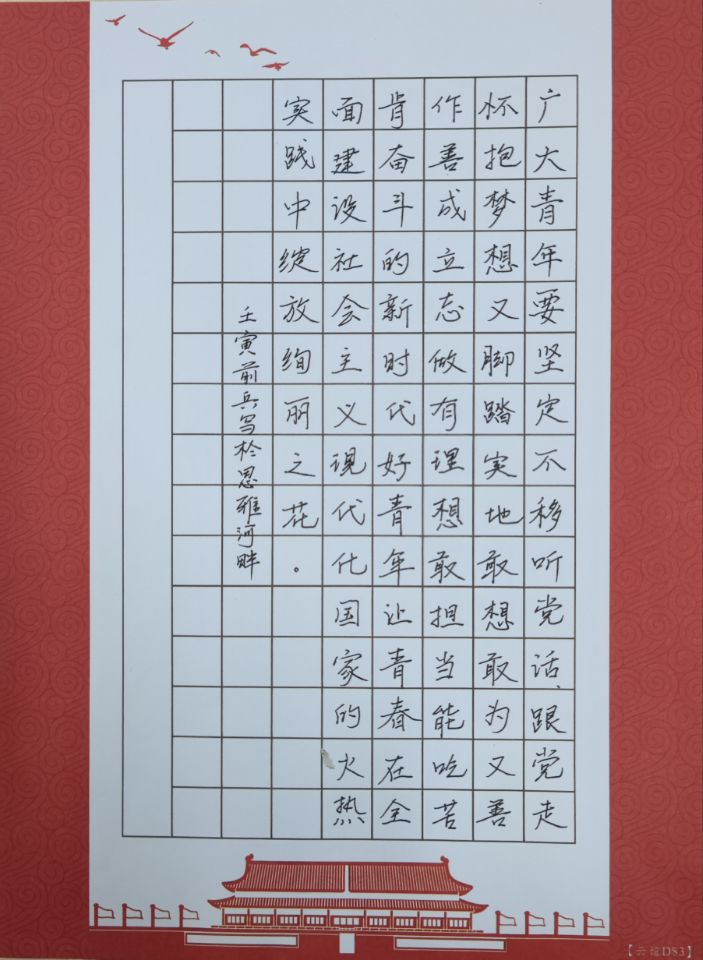 广大青年要坚定不移听党话、跟党走
怀抱梦想又脚踏实地敢想敢为又善
作善成立志做有理想敢担当能吃苦
肯奋斗的新时代好青年让青春在全
面建设社会主义现代化国家的火热
实践中绽放绚丽之花。
壬寅前兵写于恩雅河畔